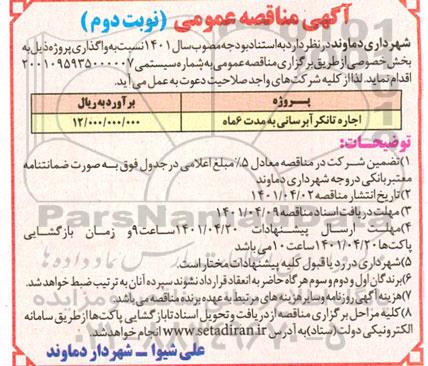 آگهی مناقصه عمومی (نوبت دوم)
شهرداری دماوند در نظر دارد به استناد بودجه مصوب سال ۱۴۰۱ نسبت به واگذاری پروژه ذیل به
بخش خصوصی از طریق برگزاری مناقصه عمومی به شماره سیستمی ۲۰۰۱۰۹۵۹۳۵۰۰۰۰۰۷
اقدام نماید. لذا از کلیه شرکت های واجد صلاحیت دعوت به عمل می آید.
پروژه برآورد به ریال
اجاره تانکر آبرسانی به مدت ۶ماه ۱۲/۰۰۰/۰۰۰/۰۰۰
توضیحات:
۱)تضمین شرکت در مناقصه معادل ۵٪ مبلغ اعلامی در جدول فوق به صورت ضمانتنامه
معتبر بانکی در وجه شهرداری دماوند
۲)تاریخ انتشار مناقصه ۱۴۰۱/۰۴/۰۲
۳)مهلت دریافت اسناد مناقصه ۱۴۰۱/۰۴/۰۹
۴)مهلت ارسال پیشنهادات ۱۴۰۱/۰۴/۲۰ ساعت۹و زمان بازگشایی
پاکت ها ۱۴۰۱/۰۴/۲۰ ساعت ۱۰ می باشد
۵)شهرداری در رد یا قبول کلیه پیشنهادات مختار است.
۶)برندگان اول و دوم و سوم هرگاه حاضر به انعقاد قرارداد نشوند سپرده آنان به ترتیب ضبط خواهد شد.
۷)هزینه آگهی روزنامه و سایر هزینه های مرتبط به عهده برنده مناقصه می باشد.
۸)کلیه مراحل برگزاری مناقصه از دریافت و تحویل اسناد تا بازگشایی پاکت ها از طریق سامانه
الکترونیکی دولت(ستاد) به آدرس www.setadiran.ir انجام خواهد شد.
علی شیوا _ شهردار دماوند